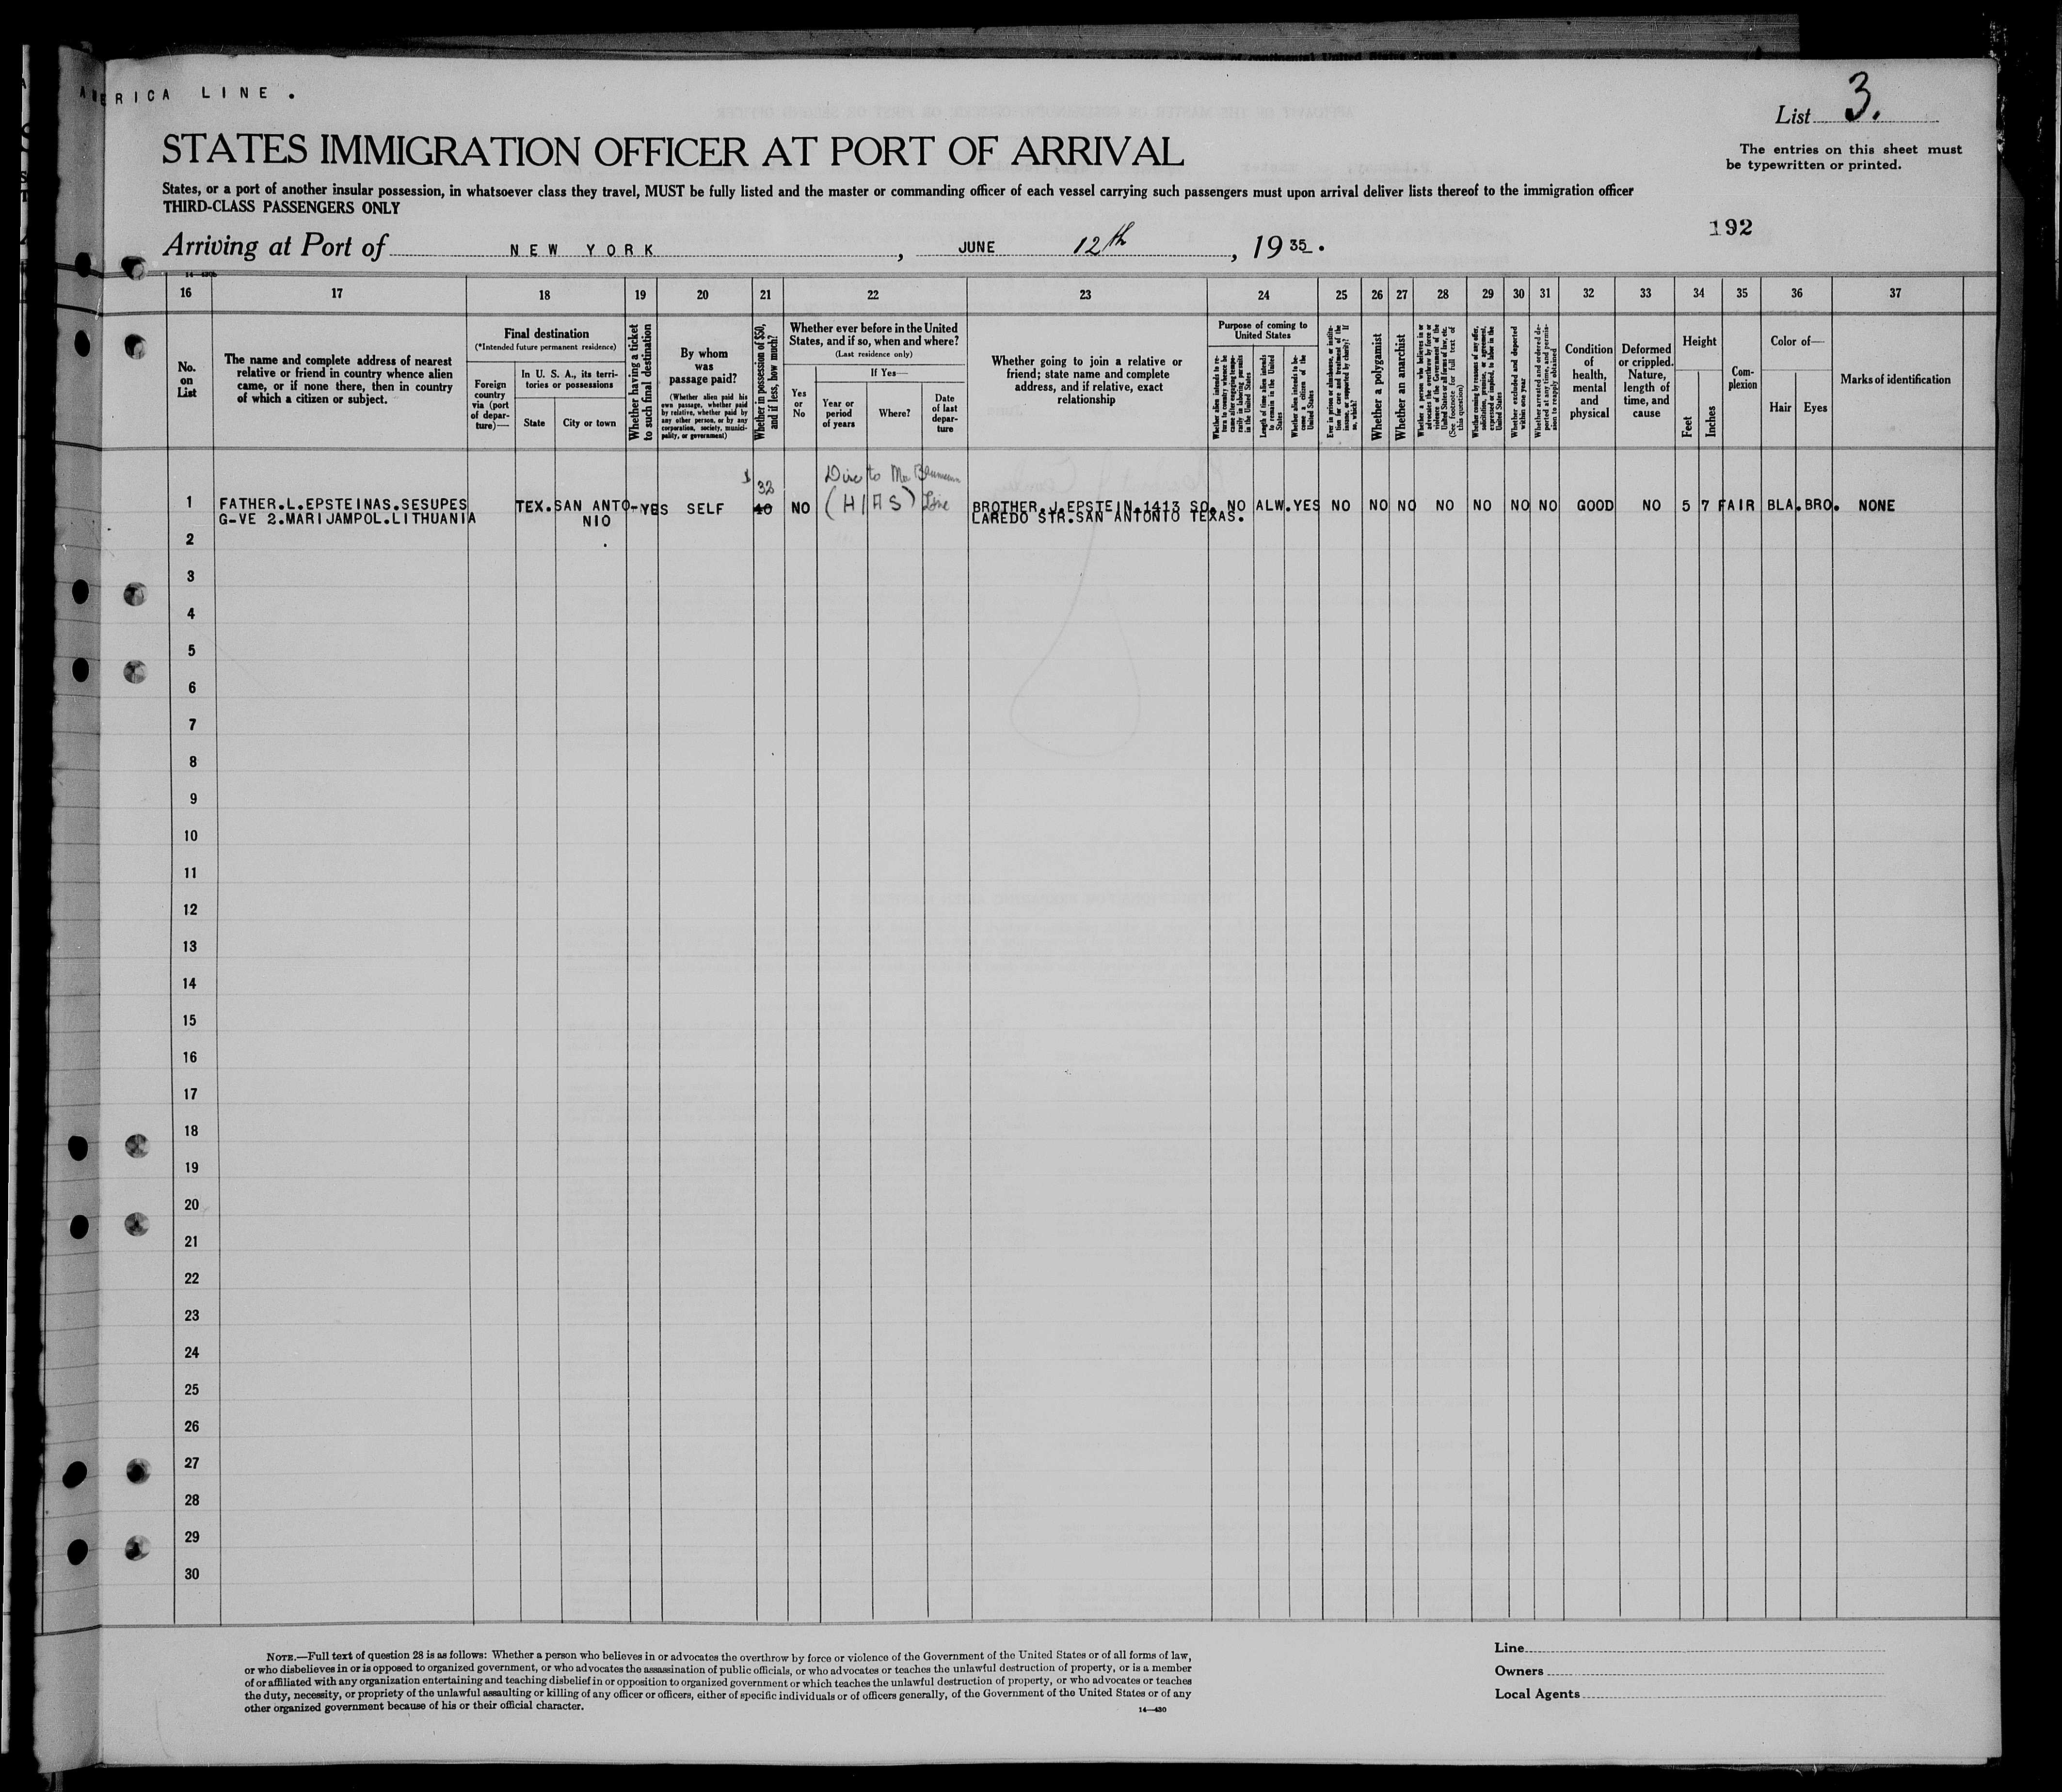 AMERICA LINE.
List 3.
STATES IMMIGRATION OFFICER AT PORT OF ARRIVAL
The entries on this sheet must
be typewritten or printed.
States, or a port of another insular possession, in whatsoever class they travel, MUST be fully listed and the master or commanding officer of each vessel carrying such passengers must upon arrival deliver lists thereof to the immigration officer
THIRD-CLASS PASSENGERS ONLY
192
Arriving at Port of NEW YORK, JUNE 12th, 1935.
16 17 18 19 20 21 22 23 24 25 26 27 28 29 30 31 32 33 34 35 36 37
No.
on
List
The name and complete address of nearest
relative or friend in country whence alien
came, or if none there, then in country
of which a citizen or subject.
Final destination
(*Intended future permanent residence)
Foreign
country
via (port
of depar-
ture)—
In U. S. A., its terri-
tories or possessions
State
City or town
Whether having a ticket
to such final destination
By whom
was
passage paid?
(Whether alien paid his
own passage, whether paid
by relative, whether paid by
any other person, or by any
corporation, society, munici-
pality, or government)
Whether in possession of $50,
and if less, how much?
Whether ever before in the United
States, and if so, when and where?
(Last residence only)
Yes
or
No
If Yes—
Year or
period
of years
Where?
Date
of last
depar-
ture
Whether going to join a relative or
friend; state name and complete
address, and if relative, exact
relationship
Purpose of coming to
United States
Whether alien intends to re-
turn to country whence he
came after engaging tempo-
rarily in laboring pursuits
in the United States
Length of time alien intends
to remain in the United
States
Whether alien intends to be-
come a citizen of the
United States
Ever in prison or almshouse, or institu-
tion for care and treatment of the
insane, or supported by charity? If
so, which?
Whether a polygamist
Whether an anarchist
Whether a person who believes in or
advocates the overthrow by force or
violence of the Government of the
United States or all forms of law, etc.
(See footnote for full text of
this question)
Whether coming by reason of any offer,
solicitation, promise, or agreement,
expressed or implied, to labor in the
United States
Whether excluded and deported
within one year
Whether arrested and ordered de-
ported at any time, and permis-
sion to reapply obtained
Condition
of
health,
mental
and
physical
Deformed
or crippled.
Nature,
length of
time, and
cause
Height
Feet
Inches
Com-
plexion
Color of—
Hair
Eyes
Marks of identification
$ 32 Disc to Mr
1 FATHER.L.EPSTEINAS.SESUPES TEX. SAN ANTO- YES SELF 40 NO (HIAS) BROTHER.J.EPSTEIN.1413 SO. NO ALW. YES NO NO NO NO NO NO NO GOOD NO 5 7 FAIR BLA. BRO. NONE
G-VE 2.MARIJAMPOL.LITHUANIA NIO LAREDO STR.SAN ANTONIO TEXAS.
2
3
4
5
6
7
8
9
10
11
12
13
14
15
16
17
18
19
20
21
22
23
24
25
26
27
28
29
30
NOTE.—Full text of question 28 is as follows: Whether a person who believes in or advocates the overthrow by force or violence of the Government of the United States or of all forms of law,
or who disbelieves in or is opposed to organized government, or who advocates the assassination of public officials, or who advocates or teaches the unlawful destruction of property, or is a member
of or affiliated with any organization entertaining and teaching disbelief in or opposition to organized government or which teaches the unlawful destruction of property, or who advocates or teaches
the duty, necessity, or propriety of the unlawful assaulting or killing of any officer or officers, either of specific individuals or of officers generally, of the Government of the United States or of any
other organized government because of his or their official character.
14—430
Line
Owners
Local Agents